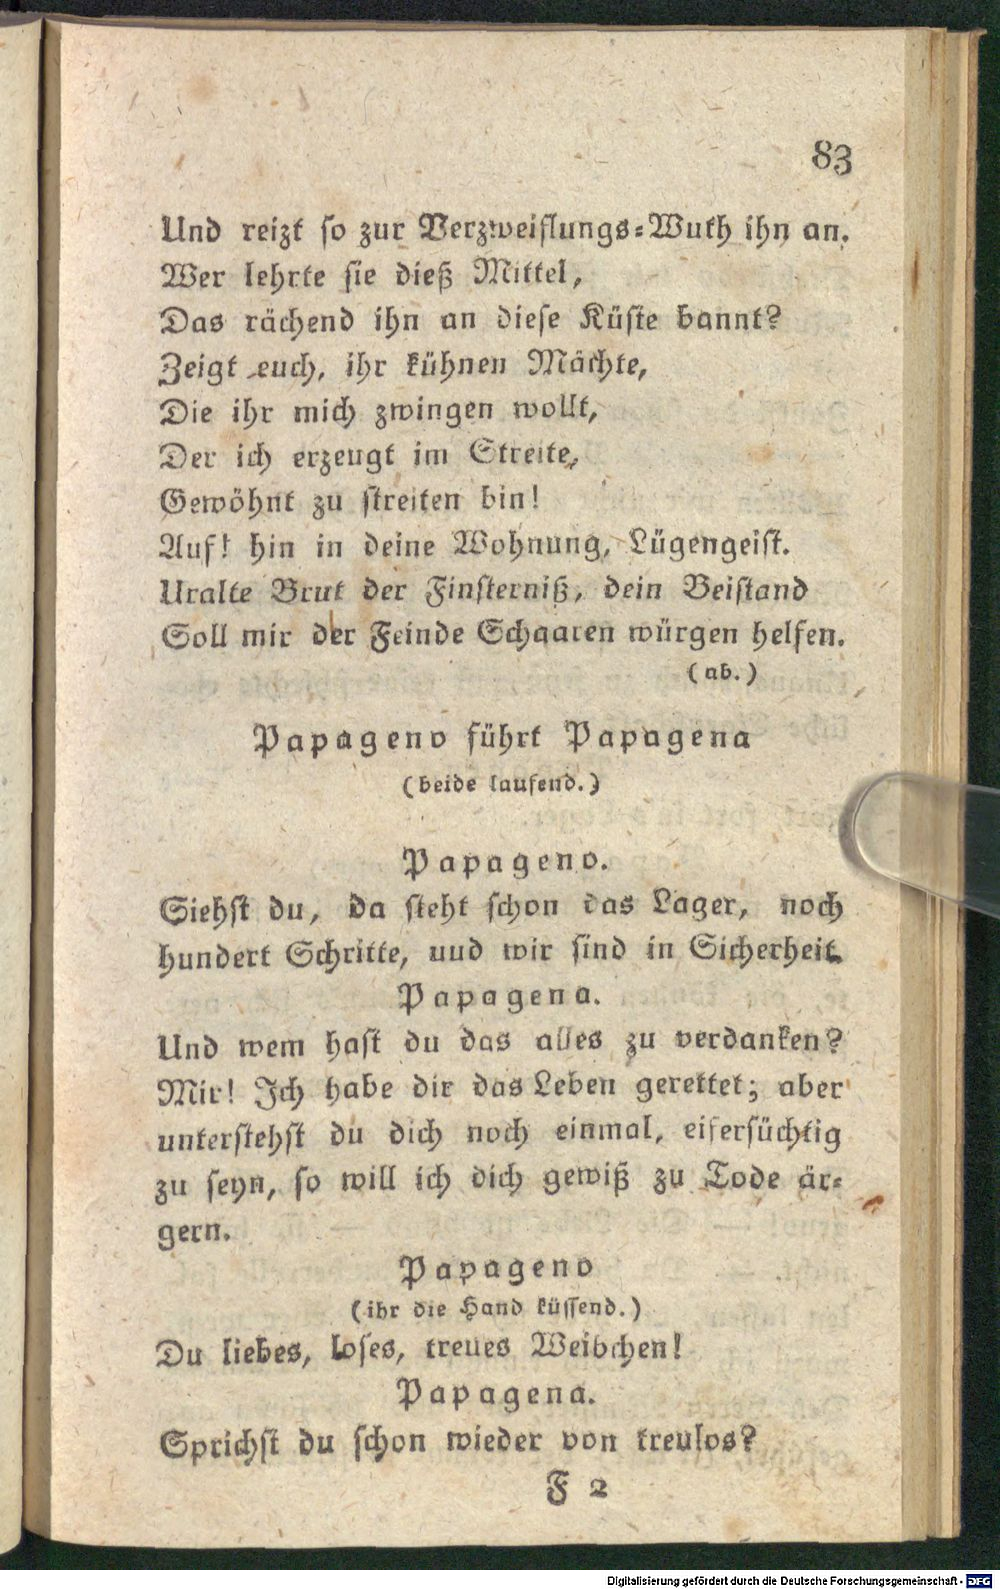 83
Und reizt so zur Verzweiflungs-Wuth ihn an.
Wer lehrte sie dieß Mittel,
Das rächend ihn an diese Küste bannt?
Zeigt euch, ihr kühnen Mächte,
Die ihr mich zwingen wollt,
Der ich erzeugt im Streite,
Gewöhnt zu streiten bin!
Auf! hin in deine Wohnung, Lügengeist.
Uralte Brut der Finsterniß, dein Beistand
Soll mir der Feinde Schaaren würgen helfen.
(ab.)
Papageno führt Papagena
(beide laufend.)
Papageno.
Siehst du, da steht schon das Lager, noch
hundert Schritte, uud wir sind in Sicherheit.
Papagena.
Und wem hast du das alles zu verdanken?
Mir! Ich habe dir das Leben gerettet; aber
unterstehst du dich noch einmal, eifersüchtig
zu seyn, so will ich dich gewiß zu Tode är-
gern.
Papageno
(ihr die Hand küssend.)
Du liebes, loses, treues Weibchen!
Papagena.
Sprichst du schon wieder von treulos?
F 2
Digitalisierung gefördert durch die Deutsche Forschungsgemeinschaft - DFG